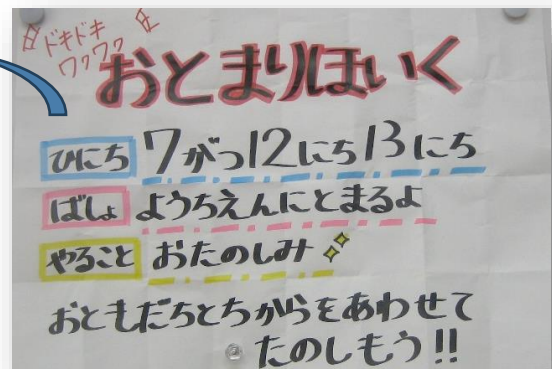 ドキドキ
ワクワク
おとまりほいく
ひにち 7がつ12にち13にち
ばしょ ようちえんにとまるよ
やること おたのしみ
おともだちとちからをあわせて
たのしもう!!